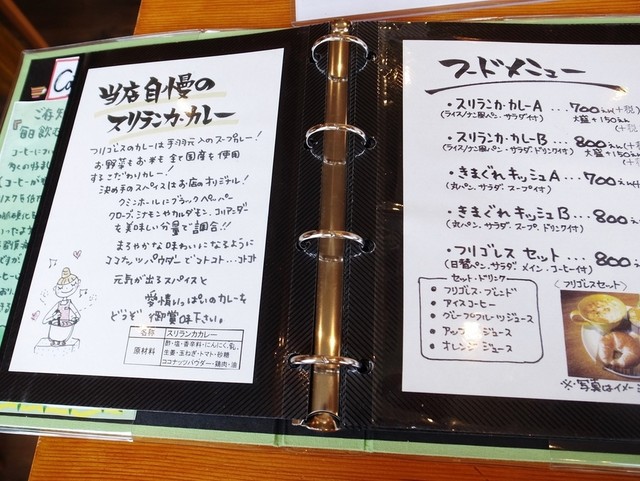 当店自慢の
スリランカ・カレー
フリゴレスのカレーは手羽元入のスープカレー！
お野菜もお米も全て国産を使用
するこだわりカレー！
決め手のスパイスはお店のオリジナル！
クミンホールにブラックペッパー
クローブ、シナモンやカルダモン、コリアンダー
を美味しい分量で調合!!
まろやかな味わいになるように
ココナッツパウダーでコトコト…コトコト
元気が出るスパイスと
愛情いっぱいのカレーを
どうぞ御賞味下さい。
名称 スリランカカレー
原材料 酢・塩・香辛料・にんにく、乳、
生姜・玉ねぎ・トマト・砂糖
ココナッツパウダー・鶏肉・油
フードメニュー
・スリランカ・カレーA …700えん(+税)
(ライス/ナン風パン・サラダ付) 大盛+150えん
(+税)
・スリランカ・カレーB …800えん
(ライス/ナン風パン・サラダ・ドリンク付) 大盛+150えん
・きまぐれ キッシュA …700えん
(丸パン、サラダ、スープ付)
・きまぐれ キッシュB …800え
(丸パン、サラダ、スープ、ドリンク付)
・フリゴレス セット …800
(日替パン、サラダ、メイン・コーヒー付)
セット・ドリンク
フリゴレス・ブレンド
アイスコーヒー
グレープフルーツジュース
アップルジュース
オレンジジュース
〈フリゴレスセット〉
※写真はイメー